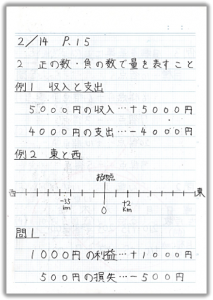 2/14 P.15
2 正の数・負の数で量を表すこと
例1 収入と支出
5000円の収入…+5000円
4000円の支出…-4000円
例2 東と西
西 東
0
+2
km
km
問1
1000円の利益…+1000円
500円の損失…-500円